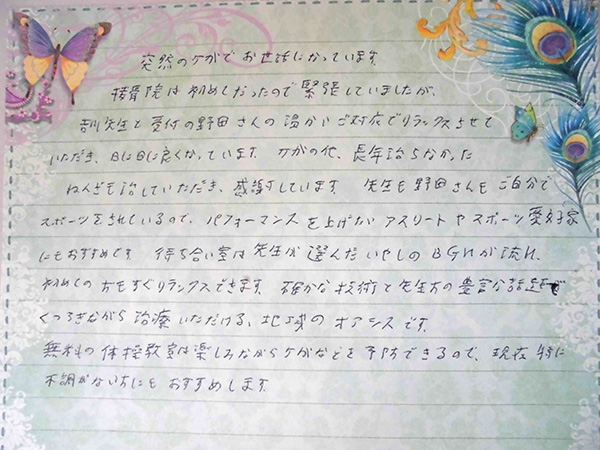 突然のケガでお世話になっています。
接骨院は初めてだったので緊張していましたが、
先生と受付の野田さんの温かいご対応でリラックスさせて
いただき、日に日に良くなっています。ケガの他、長年治らなかった
ねんざも治していただき、感謝しています。先生も野田さんもご自分で
スポーツをされているので、パフォーマンスを上げたいアスリートやスポーツ愛好家
にもおすすめです。待ち合い室は先生が選んだいやしのBGMが流れ、
初めての方もすぐリラックスできます。確かな技術と先生方の豊富な話題で
くつろぎながら治療いただける、地域のオアシスです。
無料の体操教室は楽しみながらケガなどを予防できるので、現在特に
不調がない方にもおすすめします。